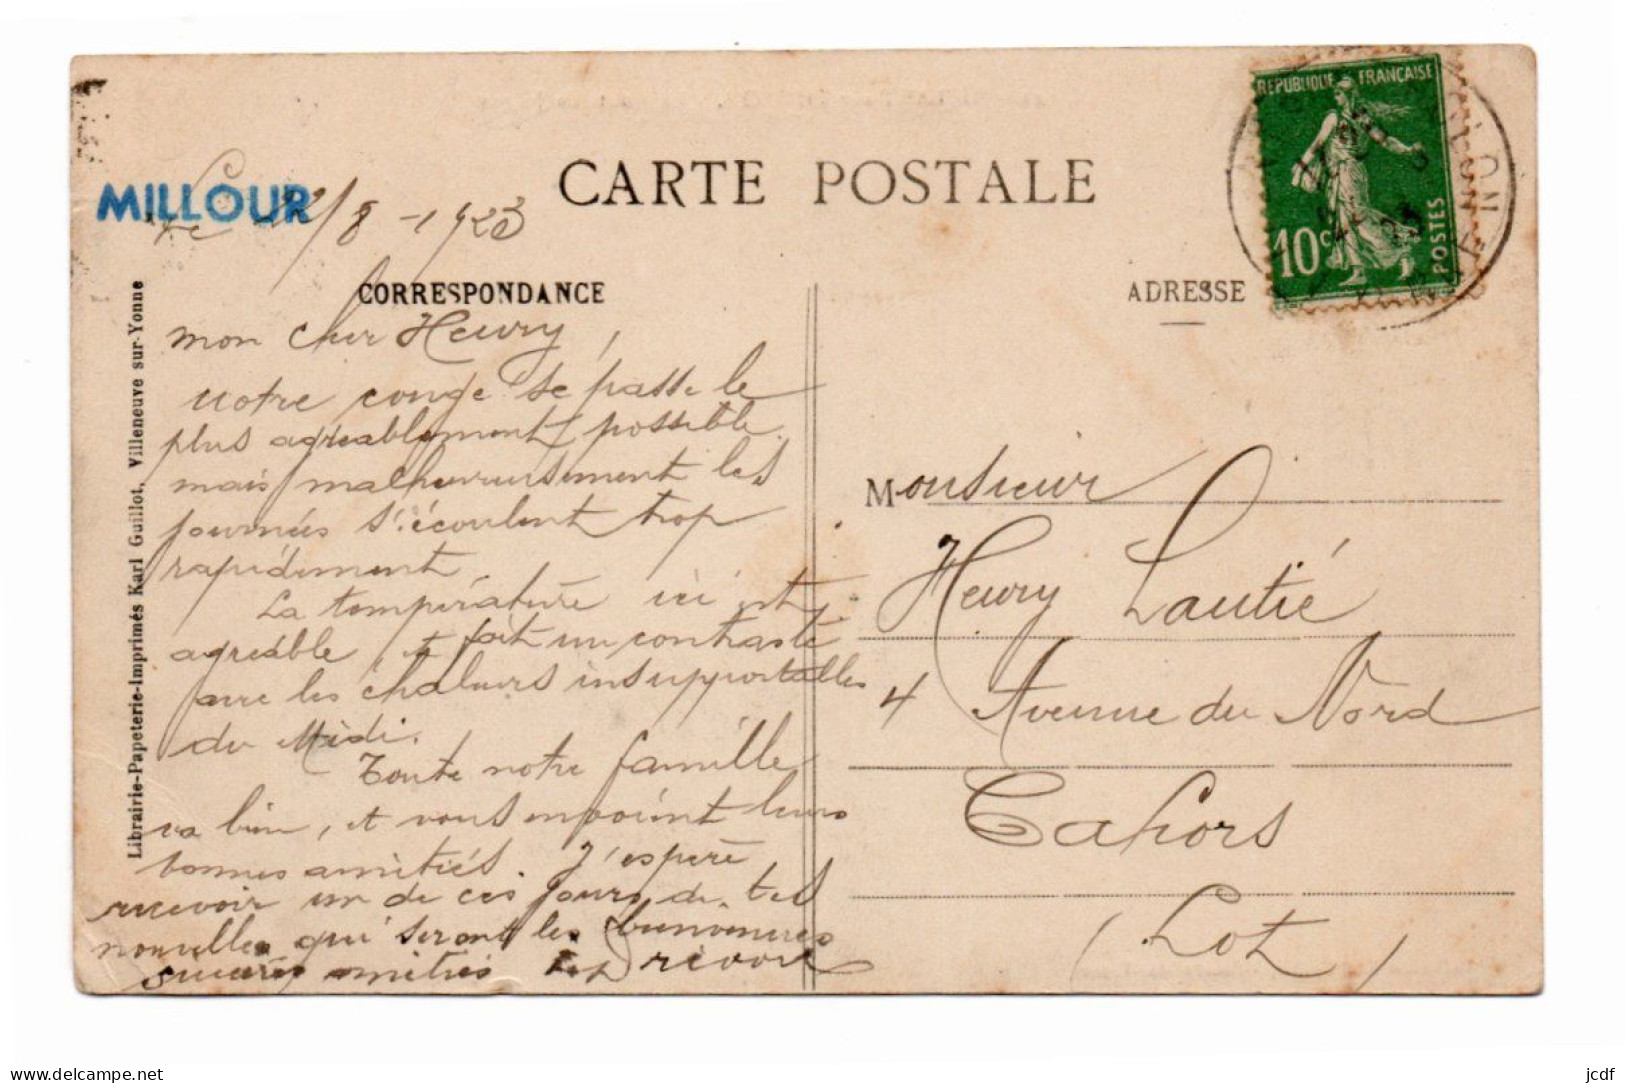 CARTE POSTALE
MILLOUR
Le 22/8-1923
CORRESPONDANCE
ADRESSE
REPUBLIQUE FRANÇAISE
10c
POSTES
mon cher Henry,
notre congé se passe le
plus agréablement possible
mais malheureusement les
journées s'écoulent trop
rapidement
La température ici est
agréable et fait un contraste
avec les chaleurs insupportables
du Midi.
Toute notre famille
va bien, et vous envoient leurs
bonnes amitiés. J'espère
recevoir un de ces jours de tes
nouvelles qui seront les bienvenues
sincères amitiés revoir
Monsieur
Henry Lautié
4 Avenue du Nord
Cahors
(Lot)
Librairie-Papeterie-Imprimés Karl Guillot, Villeneuve sur-Yonne
www.delcampe.net
jcdf